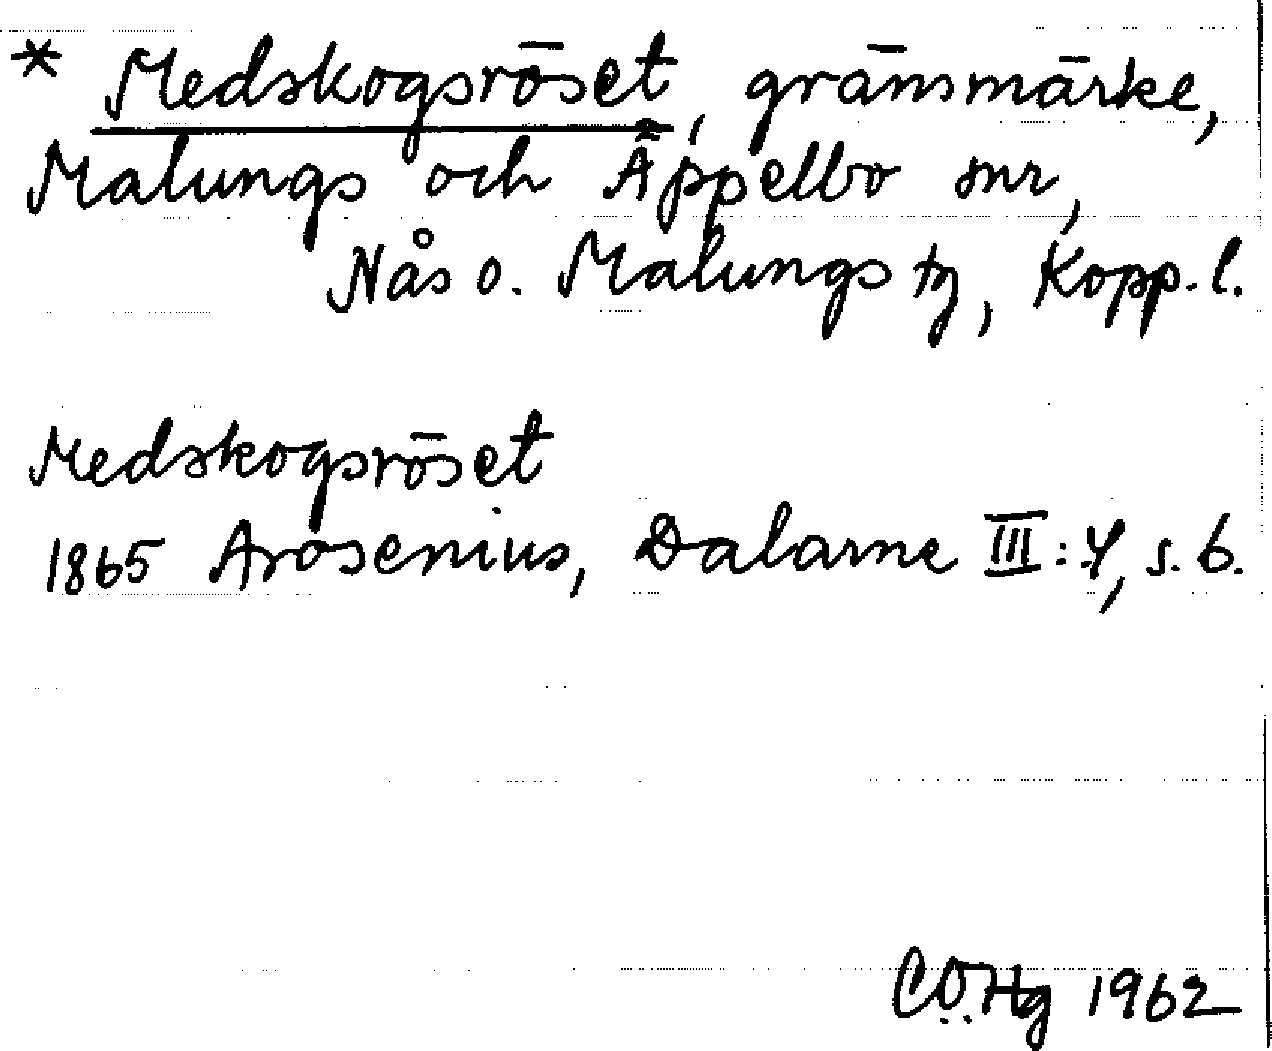 * Medskogsröset, gränsmärke,
Malungs och Äppelbo snr,
Nås o. Malungs tg, Kopp. l.
Medskogsröset
1865 Arosenius, Dalarne III:4, s. 6.
C.Ö.Hg 1962